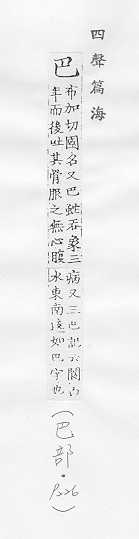 四聲篇海
巴
布加切國名又巴虵吞象三
年而後吐其骨服之無心腹
病又三巴記云閬白
水東南如巴字也
(巴部・P.226)